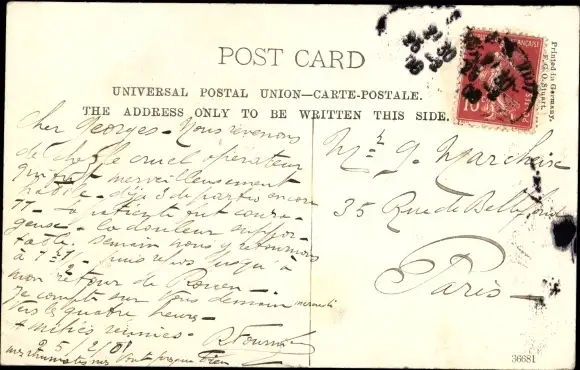 POST CARD
UNIVERSAL POSTAL UNION—CARTE-POSTALE.
THE ADDRESS ONLY TO BE WRITTEN THIS SIDE.
Printed in Germany.
F. G. O. Stuart.
Cher Georges - Nous revenons
de chez le cruel opérateur
qui fut merveilleusement
habile - déjà 3 de parties encore
- la patiente fut coura-
geuse - la douleur suppor-
table. demain nous y retournons
à - puis repos jusqu'à
mon retour de Rouen -
Je compte sur vous demain mercredi
vers quatre heures -
amitiés réunies -
25/2/08
vont presque bien
Mr G. Marchoise
35 Rue de
Paris
36681